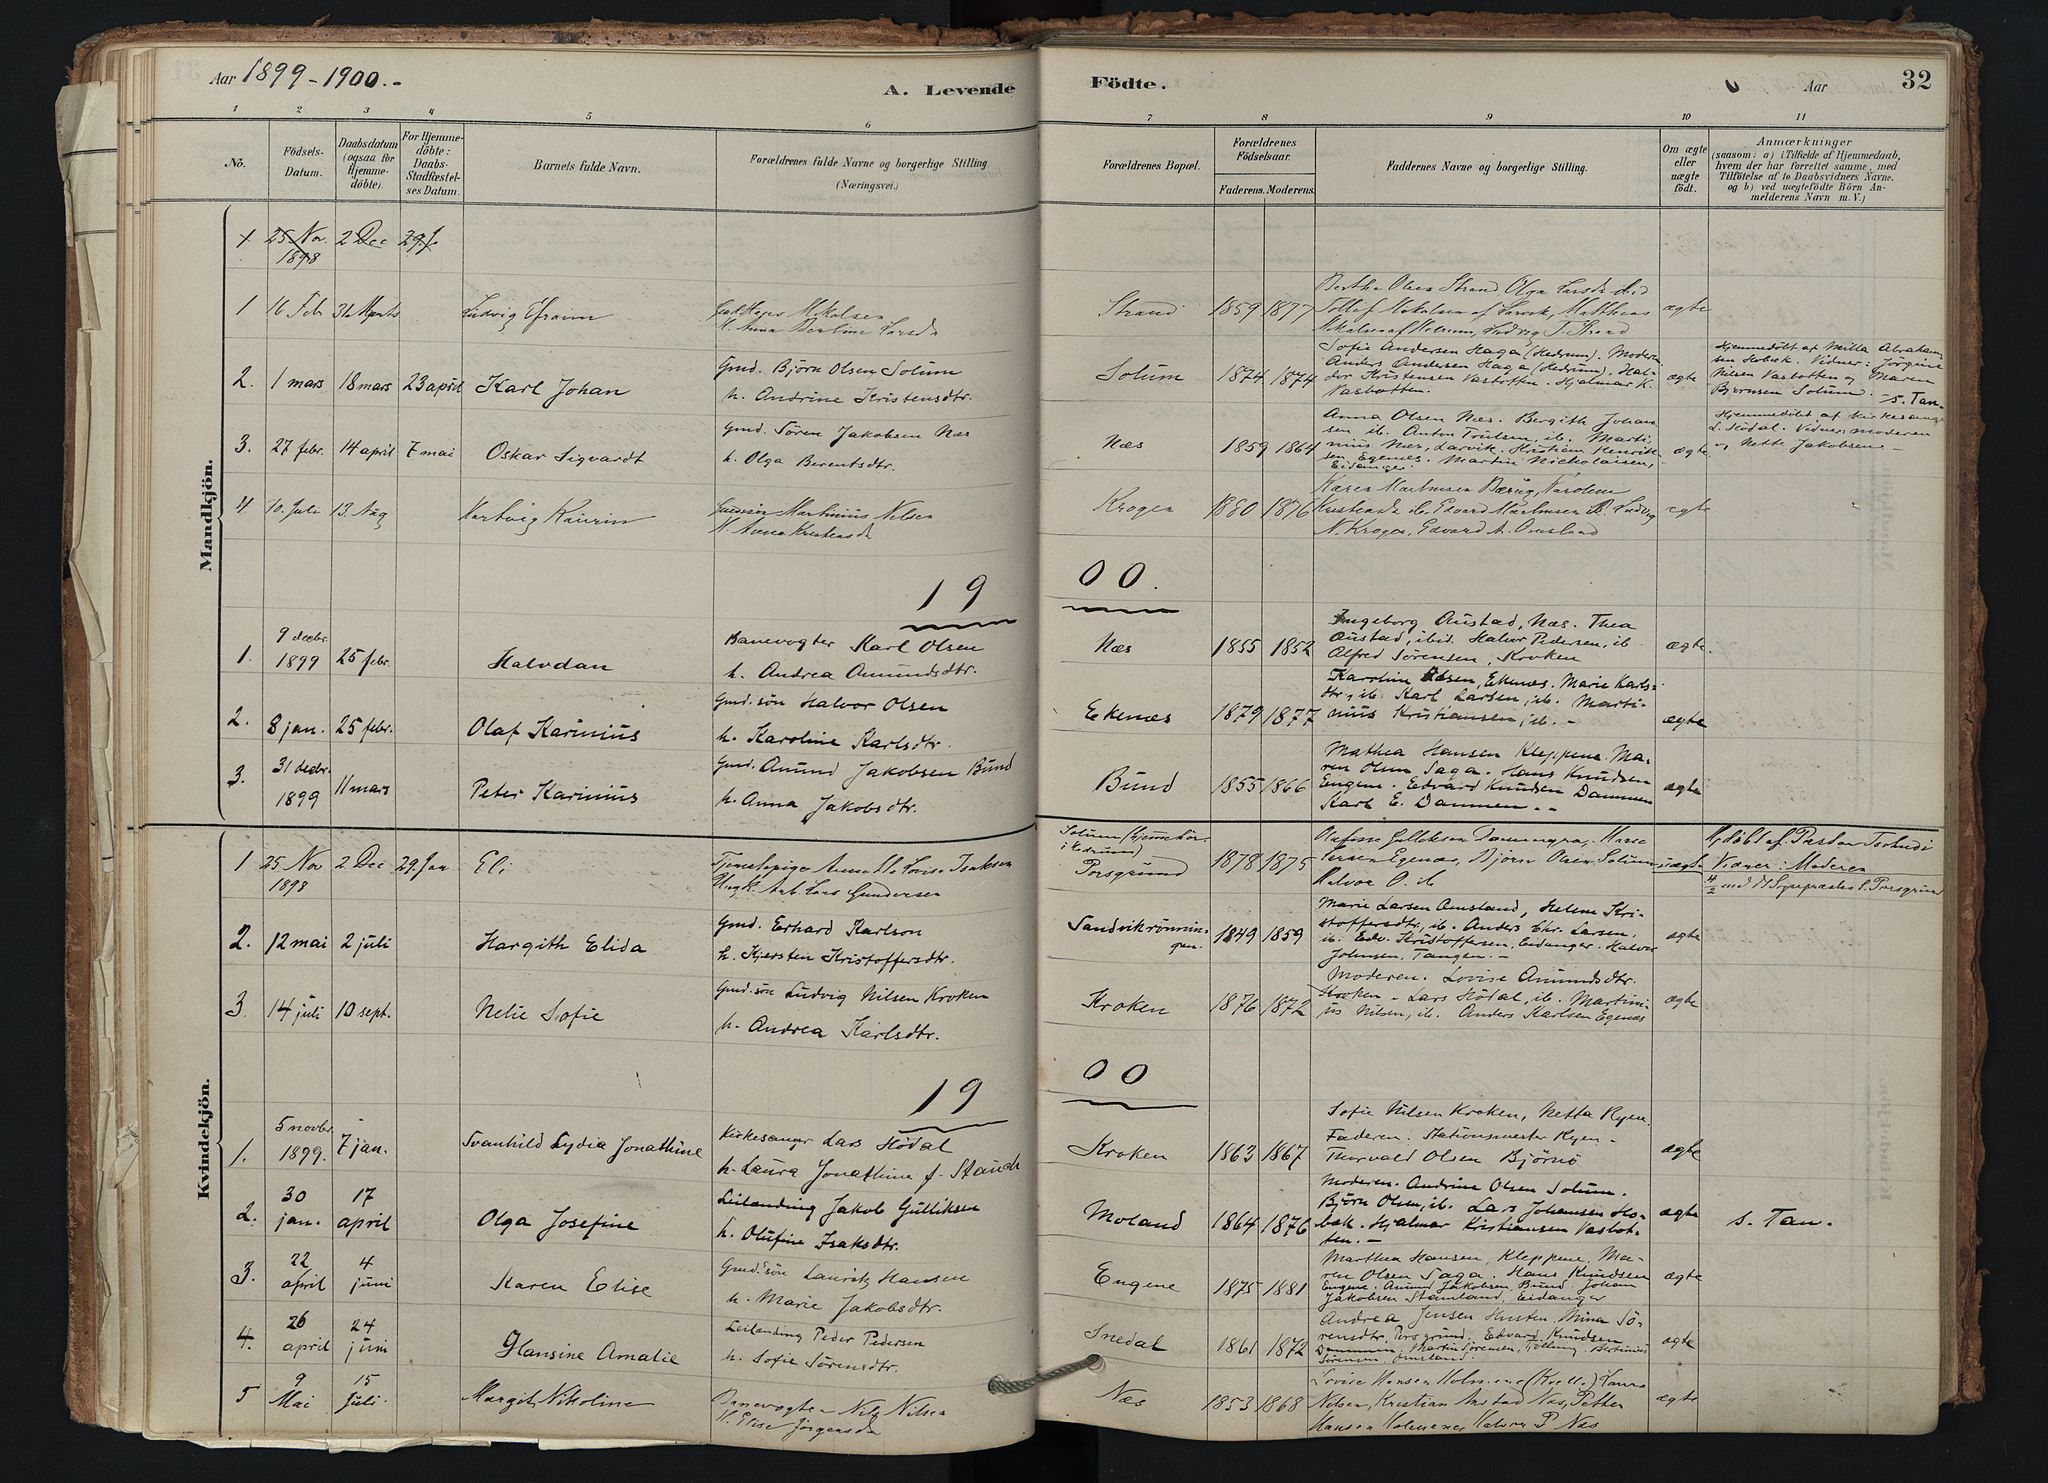 Aar 1899-1900.-
A. Levende
Födte.
Aar
32
1
2
3
4
5
6
7
8
9
10
11
No.
Födsels-Datum.
Daabsdatum (ogsaa for Hjemme-döbte).
For Hjemme-döbte: Daabs-Stadfæstel-ses Datum.
Barnets fulde Navn.
Forældrenes fulde Navne og borgerlige Stilling. (Næringsvei.)
Forældrenes Bopæl.
Forældrenes Födselsaar.
Faderens. Moderens.
Faddernes Navne og borgerlige Stilling.
Om ægte eller uægte födt.
Anmærkninger
(saasom: a) i Tilfælde af Hjemmedaab,
hvem der har forrettet samme, med
Tilföielse af to Daabsvidners Navne.
og b) ved uægtefödte Börn An-
melderens Navn m. V.)
Mandkjön.
25 Nov. 1898 2 Dec 29 J
1 16 Febr 31 Marts Ludvig Efraim Mikalsen
H. Anna Bertine Larsd.
Strand 1859 1877 Berthe Olsen Strand Olga Larsd. ibid
Mikalsen af Larvik, Mathias
Mikalsen af Hedrum, Ludvig Strand ægte
2. 1 mars 18 mars 23 april Karl Johan Gmd. Björn Olsen Solum
h. Andrine Kristensdtr.
Solum 1874 1874 Sofie Andersen Haga (Hedrum). Moderen
Anders Andersen Haga (Hedrum). Hal-
vor Kristensen Vasbotten. Hjalmar K.
Vasbotten. ægte
Hjemmedöbt af Milla Abraham-
sen Hobæk. Vidner: Jörgine
Nilsen Vasbotten og Maren
Bjørnsen Solum. s. Tan-
3. 27 febr. 14 april 7 mai Oskar Sigvardt Gmd. Sören Jakobsen Næs
h. Olga Berentsdtr.
Næs 1859 1864 Anna Olsen Næs. Bergith Johan-
sen ib. Anton Trulsen, ib. Marti-
nius Næs, Larvik. Kristian Henrik-
sen Egenes. Martin Nickolaisen,
Eidanger. ægte
Hjemmedöbt af kirkesanger
L. Hödal. Vidner: moderen
og Nette Jakobsen.-
4 10. Juli 13. Aug Hartvig Kaurin Martinius Nilsen
H. Anna Kristensd
Krogen 1880 1876 Karen Martinsen Bærug, Karoline
Kristensd. ib. Edvard Martinsen B. Ludvig
N. Krogen, Edvard A. Omsland ægte
19 00.
1. 9 decbr. 1899 25 febr. Halvdan Banevogter Karl Olsen
h. Andrea Amundsdtr.
Næs 1855 1852 Ingeborg Austad, Næs. Thea
Austad, ibid. Halvor Pedersen, ib.
Alfred Sørensen, Kroken ægte.
2. 8 jan. 25 febr. Olaf Karinius Gmd. søn Halvor Olsen
h. Karoline Karlsdtr.
Ekenæs 1879 1877 Karoline Olsen, Ekenæs. Marie Karls-
dtr., ib. Karl Larsen, ib. Marti-
nius Kristiansen, ib. - ægte
3. 31 decbr. 1899 11 mars Peter Karinius Gmd. Amund Jakobsen Bund
h. Anna Jakobsdtr.
Bund 1855 1866 Mathea Hansen Kleppene. Ma-
ren Olsen Saga. Hans Knudsen
Engene. Edvard Knudsen Dammen
Karl E. Dammen. - ægte
Kvindekjön.
1 25 Nov 1898 2 Dec 29. Jan Eli Tjenestepige Anne Lovise Isaksen
Ungk. Arb. Lars Gundersen
Solum (hjemmehör. i Hedrum) Porsgrund 1878 1875 Gulliksen Marie
Larsen Egenæs, Björn Olsen Solum
Halvor O. ib uægte
H. döbt af Pastor Tschudi
Vidner: Moderen
2. 12 mai 2 juli Hargith Elida Gmd. Erhard Karlson
h. Kjersten Kristoffersdtr.
Sandvikrønnin-gen. 1849 1859 Marie Larsen Omsland, Helene Kri-
stoffersdtr., ib. Anders Chr. Larsen,
ib. Edv. Kristoffersen, Eidanger. Halvor
Johnsen, Tangen. - ægte
3. 14 juli 10 sept. Nelie Sofie Gmd. søn Ludvig Nilsen Kroken
h. Andrea Karlsdtr.
Kroken 1876 1872 Moderen. Lovise Amundsdtr.
Kroken - Lars Hödal, ib. Martini-
us Nilsen, ib. Anders Karlsen Egenæs ægte
19 00
1. 5 novbr. 1899. 7 jan. Svanhild Lydia Jonathine Kirkesanger Lars Hödal
h. Laura Jonathine f.
Kroken 1863 1867 Sofie Nilsen Kroken, Netta Ryen.
Faderen. Stationsmester Ryen -
Thorvald Olsen Bjørnø ægte
2. 30 jan. 17 april Olga Josefine Leilænding Jakob Gulliksen
h. Olufine Isaksdtr.
Moland 1864 1876 Moderen. Andrine Olsen Solum.
Björn Olsen, ib. Lars Johansen Ho-
bæk. Hjalmar Kristiansen Vasbot-
ten. - ægte s. Tan.
3. 22 april 4 juni Karen Elise Gmd. søn Lauritz Hansen
h. Marie Jakobsdtr.
Engene 1875 1881 Marthea Hansen, Kleppene. Ma-
ren Olsen Saga. Hans Knudsen
Engene. Amund Jakobsen Bund. Johan
Jakobsen Stamland, Eidanger ægte
4. 26 april 24 juni Hansine Amalie Leilænding Peder Pedersen
h. Sofie Sørensdtr.
Snedal 1861 1872 Andrea Jensen Mina Sö-
rensdtr. Porsgrund. Edvard Knudsen
Dammen. Martin Sørensen, Bertinius
Sørensen, Omsland. ægte
5 9 Mai 15 Juli. Margit Nikoline Banevogter Nils Nilsen
H. Elise Jörgensd
Næs 1853 1868 Lovise Hansen Laura
Nilsen, Kristian Austad Næs, Petter
Hansen Holmene, Halvor P. Næs ægte